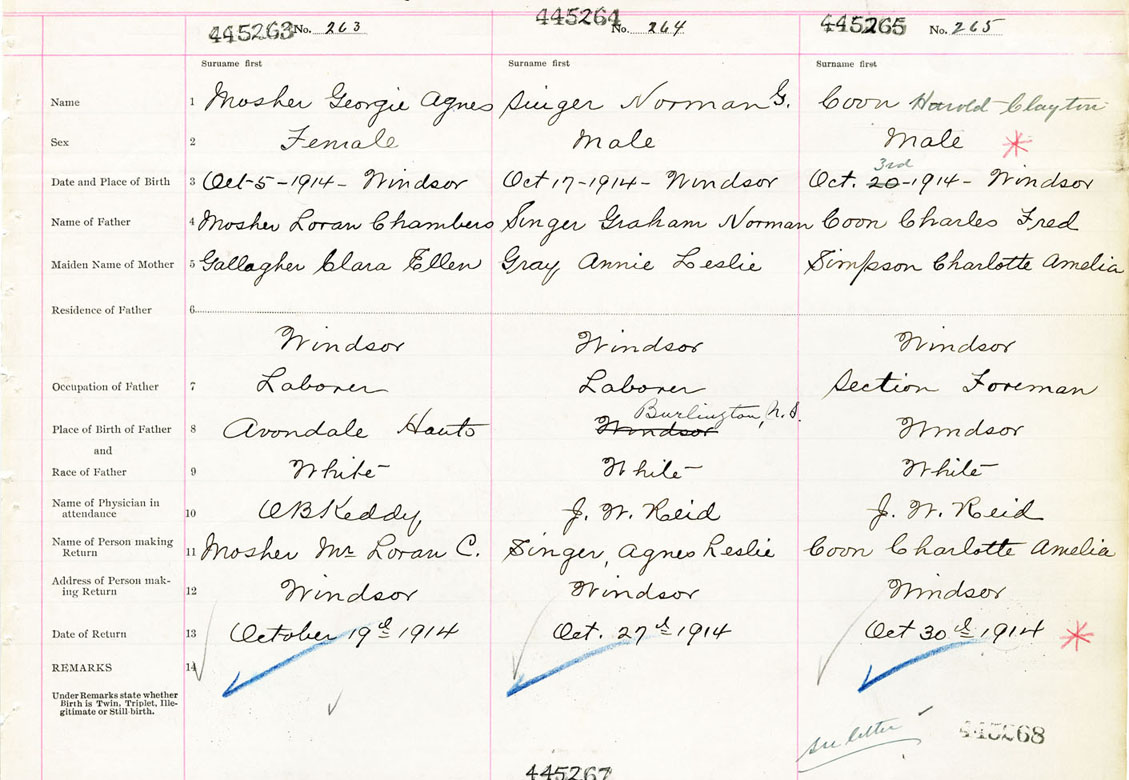 445263 No. 263 445264 No. 264 445265 No. 265
Surname first Surname first Surname first
Name 1 Mosher Georgie Agnes Singer Norman G. Coon Harold Clayton
Sex 2 Female Male Male *
3rd
Date and Place of Birth 3 Oct-5-1914- Windsor Oct 17-1914- Windsor Oct. 20-1914- Windsor
Name of Father 4 Mosher Loran Chambers Singer Graham Norman Coon Charles Fred
Maiden Name of Mother 5 Gallagher Clara Ellen Gray Annie Leslie Simpson Charlotte Amelia
Residence of Father 6
Windsor Windsor Windsor
Occupation of Father 7 Laborer Laborer Section Foreman
Burlington, N.S.
Place of Birth of Father 8 Avondale Hants Windsor Windsor
and
Race of Father 9 White White White
Name of Physician in
attendance 10 O B Keddy J. W. Reid J. W. Reid
Name of Person making
Return 11 Mosher Mr Loran C. Singer, Agnes Leslie Coon Charlotte Amelia
Address of Person mak-
ing Return 12 Windsor Windsor Windsor
Date of Return 13 October 19th 1914 Oct. 27th 1914 Oct 30th 1914 *
REMARKS 14
Under Remarks state whether
Birth is Twin, Triplet, Ille-
gitimate or Still birth.
see letter 445268
445267